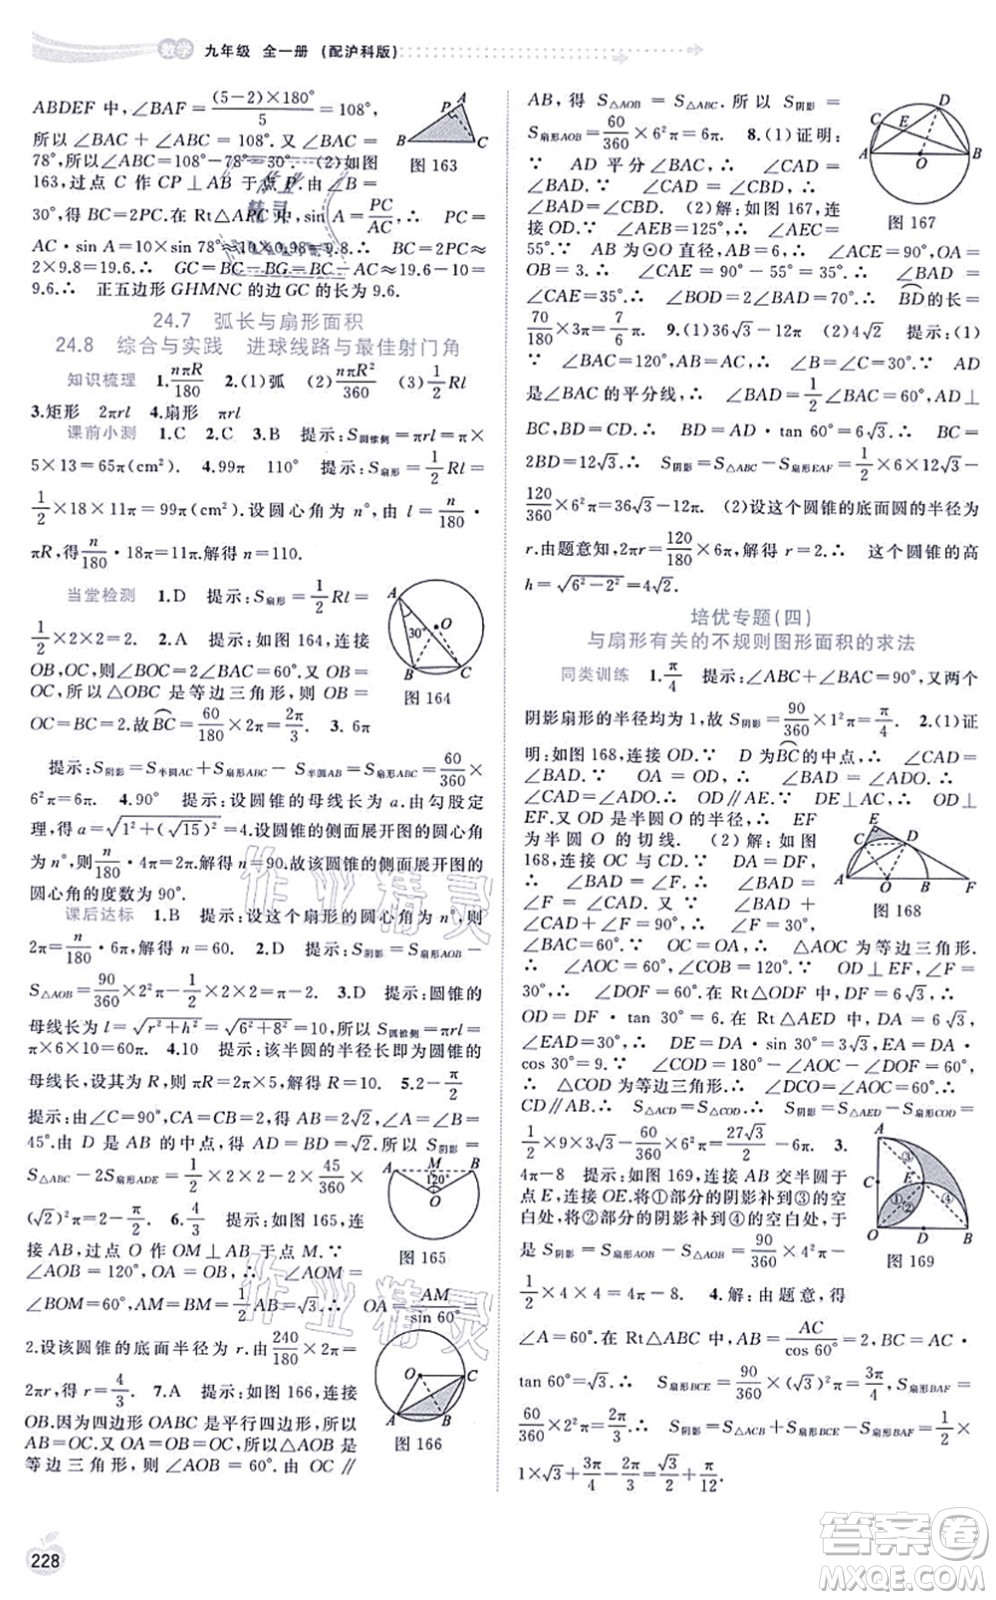 数学 九年级 全一册 (配沪科版)
ABDEF 中, ∠BAF=(5-2)×180°/5=108°,
所以 ∠BAC + ∠BAF = 108°. 又 ∠BAC =
78°, 所以∠BAC=108°-78°=30°. (2)如图
163, 过点 C 作 CP⊥AB 于点 P. 由∠B=
30°, 得 BC=2PC. 在 Rt△APC 中, sin A=PC/AC, PC=
AC·sin A=10× sin 78°≈10×0.98=9.8. ∴ BC=2PC≈
2×9.8=19.6. ∴ GC=BC-BG=BC-AC=19.6-10=
9.6. ∴ 正五边形 GHMNC 的边 GC 的长为 9.6.
图 163
24.7 弧长与扇形面积
24.8 综合与实践 进球线路与最佳射门角
知识梳理 1. nπR/180 2.(1)弧 (2) nπR²/360 (3) 1/2 Rl
3.矩形 2πrl 4.扇形 πrl
课前小测 1.C 2.C 3.B 提示: S圆锥侧=πrl=π×
5×13=65π(cm²). 4.99π 110° 提示: S扇形=1/2 Rl=
1/2×18×11π=99π(cm²). 设圆心角为 n°, 由 l=n/180·
πR, 得 n/180·18π=11π. 解得 n=110.
当堂检测 1.D 提示: S扇形=1/2 Rl=
1/2×2×2=2. 2.A 提示: 如图 164, 连接
OB, OC, 则∠BOC=2∠BAC=2×30°=
60°. 所以△OBC 是等边三角形, 所以 OB=
OC=BC=2. 故 BC=60/180×2π=2π/3. 3. 6π
图 164
提示: S阴影=S半圆AC+S扇形ABC-S半圆AB=S扇形ABC=60/360×
6²π=6π. 4.90° 提示: 设圆锥的母线长为 a. 由勾股定
理, 得 a=√(1²+(√15)²)=4. 设圆锥的侧面展开图的圆心角
为 n°, 则 n/180×4π=2π. 解得 n=90. 故该圆锥的侧面展开图的
圆心角的度数为 90°.
课后达标 1.B 提示: 设这个扇形的圆心角为 n°, 则
2π=n/180·6π, 解得 n=60. 2.D 提示: S阴影=S扇形AOB-
S△AOB=90/360×2²π-1/2×2×2=π-2. 3.D 提示: 圆锥的
母线长为 l=√(r²+h²)=√(6²+8²)=10, 所以 S圆锥侧=πrl=
π×6×10=60π. 4.10 提示: 该半圆的半径长即为圆锥的
母线长, 设其为 R, 则 πR=2π×5, 解得 R=10. 5.2-π/2
提示: 由∠C=90°, CA=CB=2, 得 AB=2√2, ∠A=∠B=
45°. 由 D 是 AB 的中点, 得 AD=BD=√2. 所以 S阴影=
S△ABC-2S扇形ADE=1/2×2×2-2×45/360×
(√2)²π=2-π/2. 6. 4/3 提示: 如图 165, 连
接 AB, 过点 O 作 OM⊥AB 于点 M. ∵
∠AOB = 120°, OA = OB, ∴ ∠AOM =
∠BOM=60°, AM=BM=√3. ∴ OA=AM/sin 60°=
图 165
2. 设该圆锥的底面半径为 r, 由 240/180π×2=
2πr, 得 r=4/3. 7.A 提示: 如图 166, 连接
OB. 因为四边形 OABC 是平行四边形, 所以
AB=OC=OA=OB. 所以△AOB 是等
边三角形, 所以∠AOB = 60°. 由 OC∥
图 166
AB, 得 S△AOB=S△ABC. 所以 S阴影=
S扇形AOB=60/360×6²π=6π. 8.(1)证明:
∵ AD 平分∠BAC, ∴ ∠CAD=
∠BAD. ∵ ∠CAD=∠CBD, ∴
∠BAD=∠CBD. (2)解: 如图 167, 连
接 OD. ∵ ∠AEB=125°, ∴ ∠AEC=
55°. ∵ AB 为⊙O 直径, ∴ ∠ACE=90°, OA=
OB = 3. ∴ ∠CAE = 90° - 55° = 35°. ∴ ∠BAD =
∠CAE = 35°. ∴ ∠BOD = 2∠BAD = 70°. ∴ BD的长=
图 167
70/180π×3=7π/6. 9.(1)36√3-12π 提示: (1)
∵ ∠BAC=120°, AB=AC, ∴ ∠B=∠C=30°. ∵ AD
是∠BAC 的平分线, ∴ ∠BAD=1/2∠BAC=60°, AD⊥
BC, BC=2BD. ∴ BD=AD·tan 60°=6√3. ∴ BC=
2BD=12√3. ∴ S阴影=S△ABC-S扇形EAF=1/2×6×12√3-
120/360π×6²=36√3-12π. (2)设这个圆锥的底面圆的半径为
r. 由题意知, 2πr=120/180π×6. 解得 r=2. ∴ 这个圆锥的高
h=√(6²-2²)=4√2.
培优专题(四)
与扇形有关的不规则图形面积的求法
同类训练 1. π/4 提示: ∠ABC+∠BAC=90°, 又两个
阴影扇形的半径均为 1, 故 S阴影=90/360×1²π=π/4. 2.(1)证
明: 如图 168, 连接 OD. ∵ D 为BC的中点, ∴ ∠CAD=
∠BAD. ∵ OA = OD, ∴ ∠BAD=∠ADO. ∴
∠CAD=∠ADO. ∴ OD∥AE. ∵ DE⊥AC, ∴ OD⊥
EF. 又∵ OD 是半圆 O 的半径, ∴ EF
为半圆 O 的切线. (2)解: 如图
168, 连接 OC 与 CD. ∵ DA = DF, ∴ ∠BAD=
∠F = ∠CAD. 又∵ ∠BAD +
∠CAD+∠F=90°, ∴ ∠F=30°,
∠BAC=60°. ∵ OC=OA, ∴ △AOC 为等边三角形.
∴ ∠AOC = 60°, ∠COB = 120°. ∵ OD⊥EF, ∠F =
30°, ∴ ∠DOF = 60°. 在 Rt△ODF 中, DF = 6√3, ∴
OD = DF · tan 30° = 6. 在 Rt△AED 中, DA = 6√3,
∠EAD=30°, ∴ DE=DA·sin 30°=3√3, EA=DA·
cos 30°=9. ∵ ∠COD = 180° - ∠AOC - ∠DOF = 60°,
∴ △COD 为等边三角形. ∴ ∠DCO=∠AOC=60°. ∴
CD∥AB. ∴ S△ACD=S△COD. ∴ S阴影=S△AED-S扇形COD=
图 168
1/2×9×3√3-60/360π×6²=27√3/2-6π. 3.
4π-8 提示: 如图 169, 连接 AB 交半圆于
点 E, 连接 OE. 将①部分的阴影补到③的空
白处, 将②部分的阴影补到④的空白处, 则
S阴影=S扇形AOB-S△AOB=90/360π×4²-
图 169
1/2×4×4=4π-8. 4. 解: 由题意, 得
∠A=60°. 在 Rt△ABC 中, AB=AC/cos 60°=2, BC=AC·
tan 60°=√3. ∴ S扇形BCE=90/360π×(√3)²=3π/4, S扇形BAF=
60/360×2²π=2π/3. ∴ S阴影=S扇形BCE+S△ABC-S扇形BAF=1/2×
1×√3+3π/4-2π/3=√3/2+π/12.
228
作业精灵
答案圈
MXQE.COM